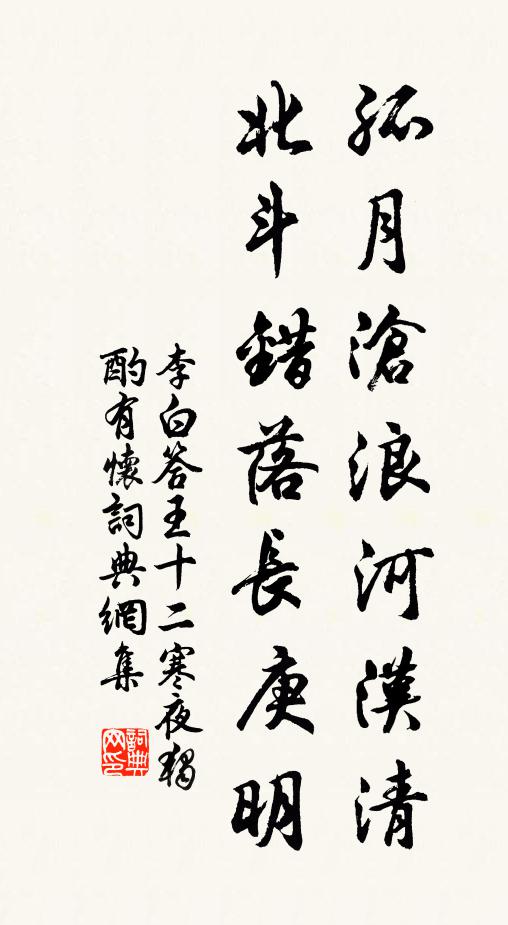 孤月滄浪河漢清
北斗錯落長庚明
李白答王十二寒夜獨
酌有懷詞典網集
詞典
网印